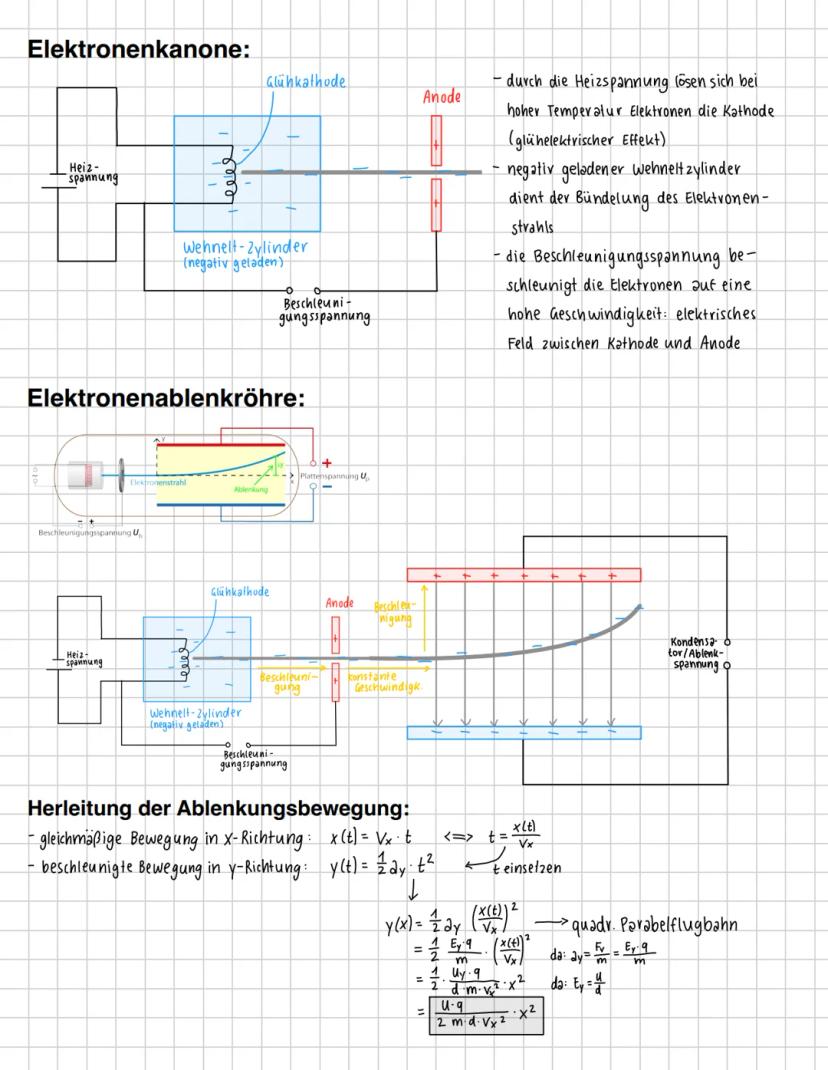 Elektronenkanone:
Glühkathode
Anode
Heiz-
spannung
Wehnelt-Zylinder
(negativ geladen)
Beschleuni-
gungsspannung
- durch die Heizspannung lösen sich bei
hoher Temperatur Elektronen die Kathode
(glühelektrischer Effekt)
- negativ geladener Wehneltzylinder
dient der Bündelung des Elektronen-
strahls
- die Beschleunigungsspannung be-
schleunigt die Elektronen auf eine
hohe Geschwindigkeit: elektrisches
Feld zwischen Kathode und Anode
Elektronenablenkröhre:
y
Elektronenstrahl
Ablenkung
x
+
Plattenspannung Up
−
- +
Beschleunigungsspannung
Glühkathode
Anode
Beschleu-
nigung
Heiz-
spannung
Beschleuni-
gung
konstante
Geschwindigk.
Kondensa-
tor/Ablenk-
spannung
Wehnelt-Zylinder
(negativ geladen)
Beschleuni-
gungsspannung
Herleitung der Ablenkungsbewegung:
- gleichmäßige Bewegung in x-Richtung: x(t) = Vx · t <=> t = x(t)/Vx
- beschleunigte Bewegung in y-Richtung: y(t) = 1/2 ay · t² ← t einsetzen
↓
y(x) = 1/2 ay (x(t)/Vx)² → quadr. Parabelflugbahn
= 1/2 Ey·q/m · (x(t)/Vx)² da: ay = Fy/m = Ey·q/m
= 1/2 · Uy·q/d·m·vx² · x² da: Ey = U/d
= U·q/2 m·d·Vx² · x²